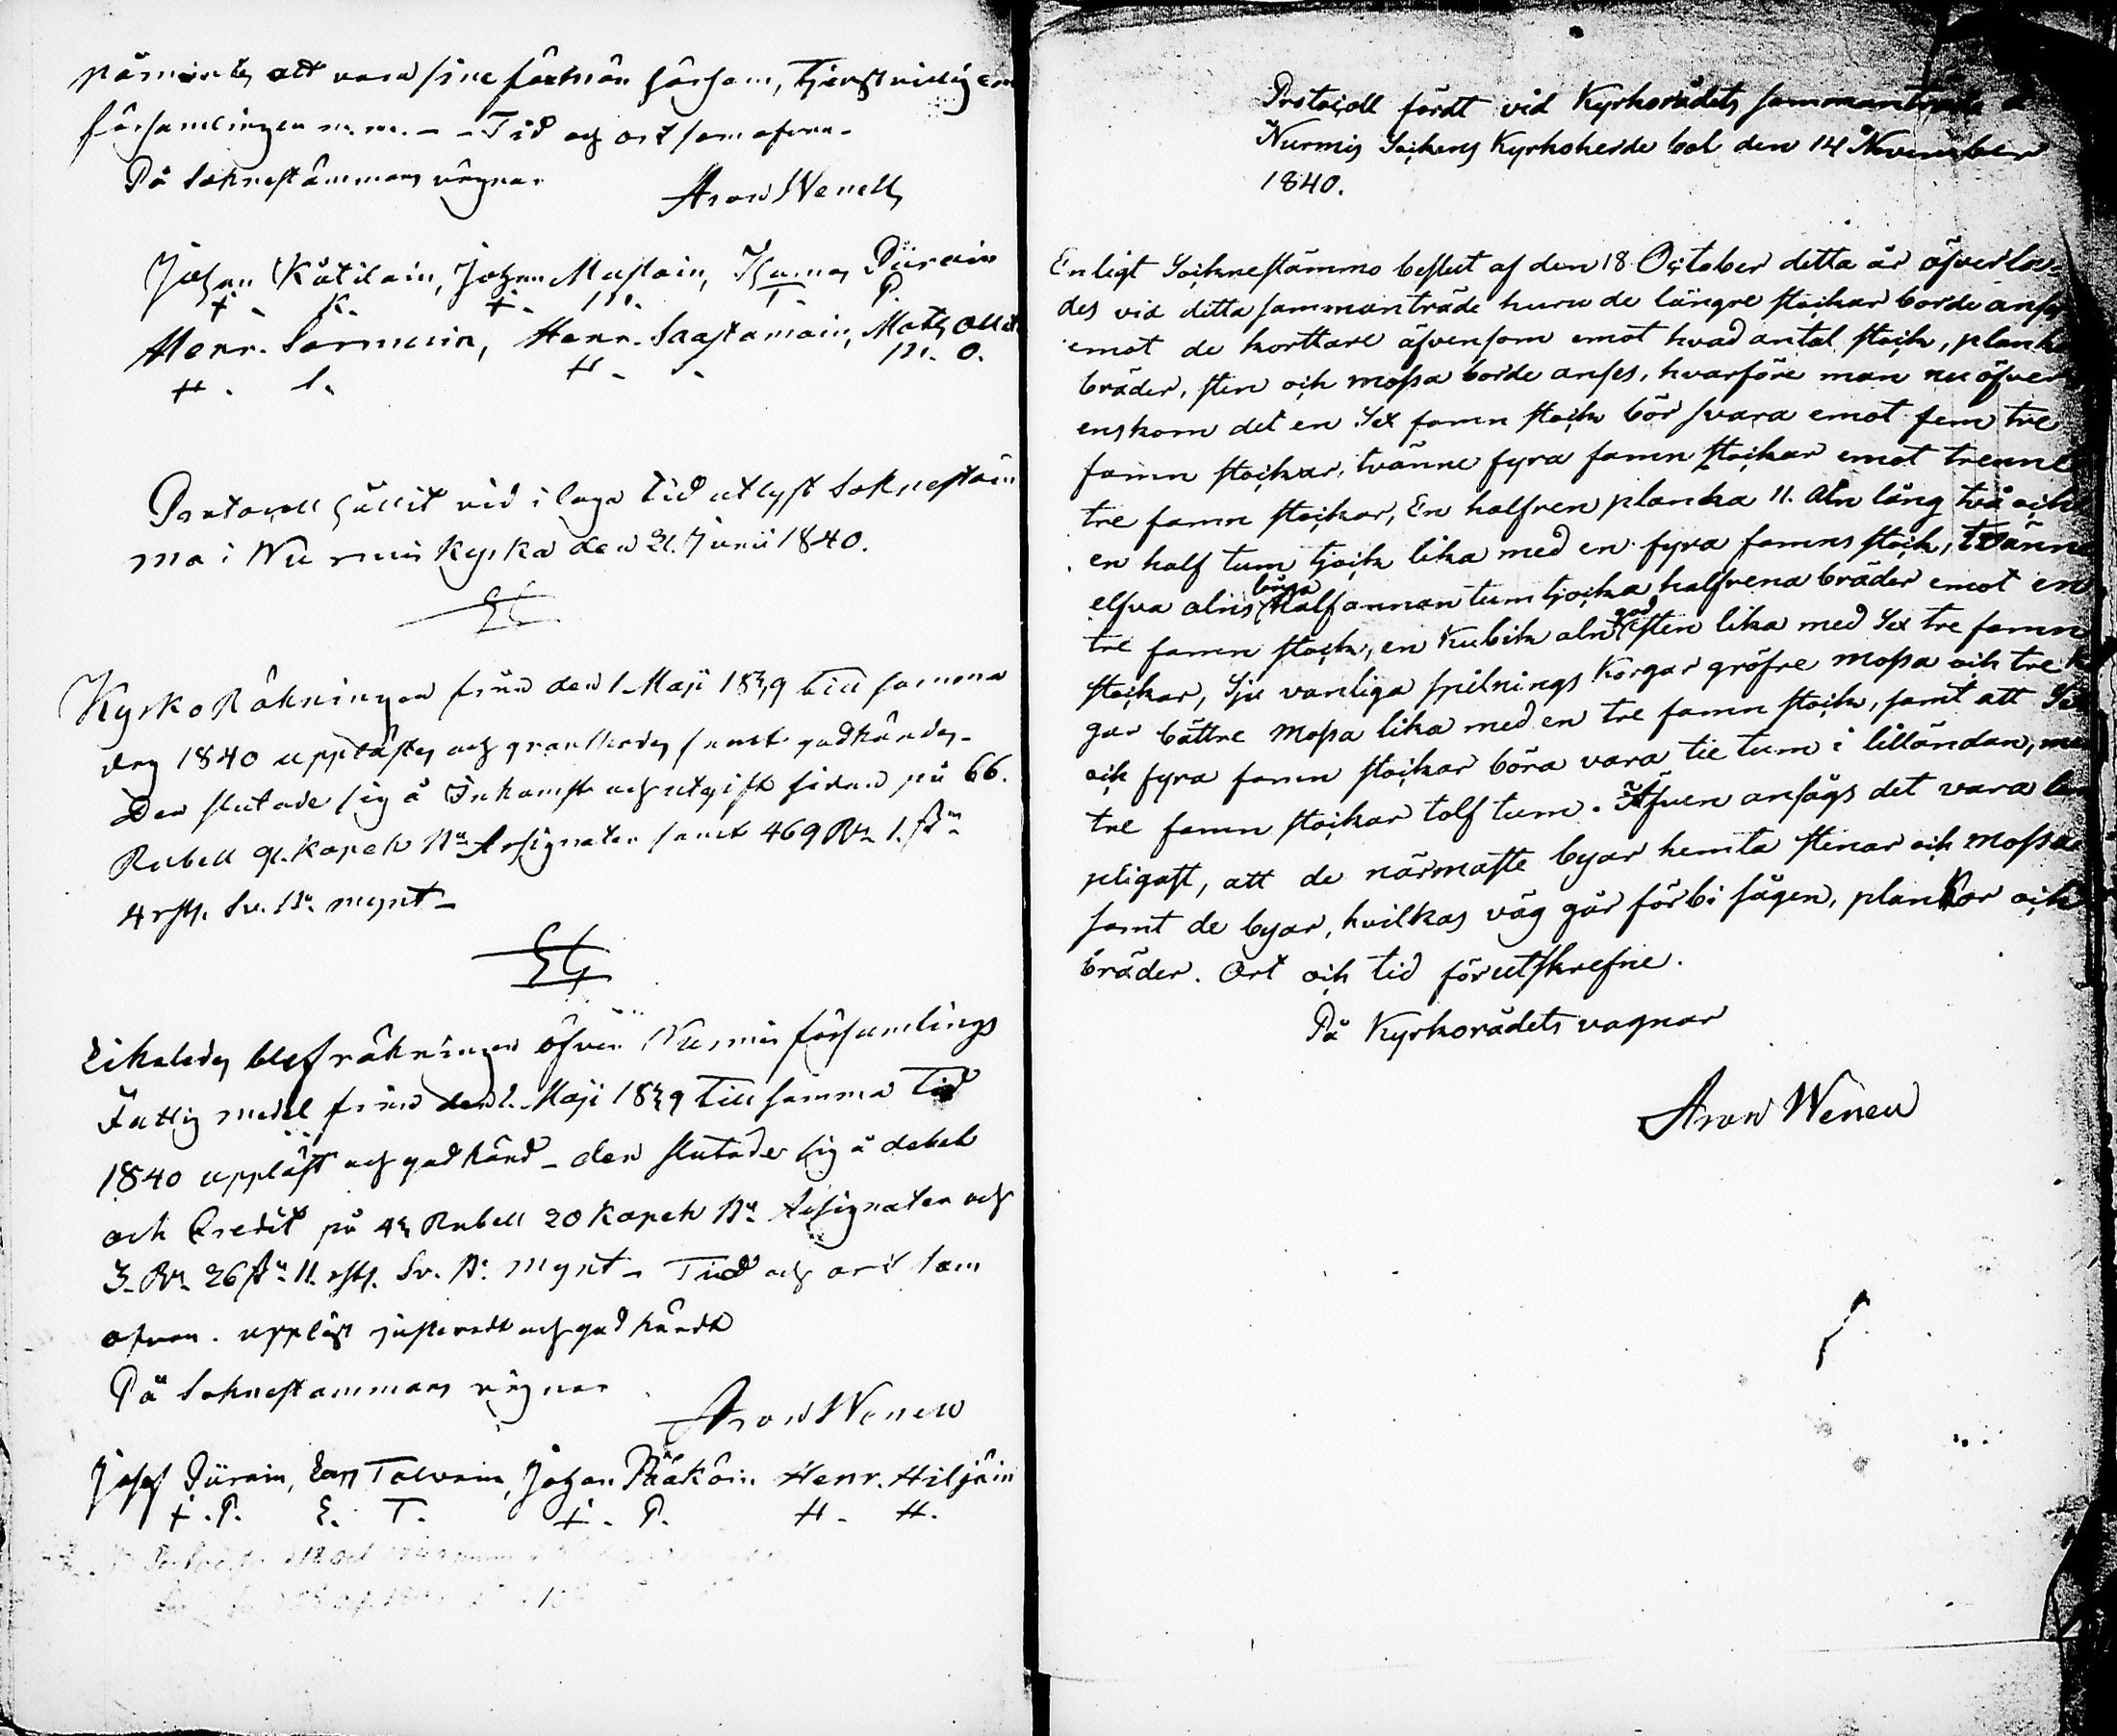 påmintes att vara sine förmän hörsam, tjenstvillig em
församlingen m.m. - - Tid och ort som ofvan.
På Soknestämmans vägnar
Aron Wenell
Johan Kätilain, Johan Mustoin, Thomas Piirain
+ - K. + - M. T - P.
Henr. Sormuin, Henr. Saastamoin, Mats
H. S. H - S - M. O.
Protocoll hållit vid i laga tid utlyst Soknestäm
ma i Nurmis Kyrka den 21. Junii 1840.
§ 1
Kyrko Räkningen från den 1 Maji 1839 till samma
dag 1840 upplästes och granskades samt godkändes.
Den slutade sig å Inkomst och utgift sidan på 66.
Rubell 91. Kopek Bco Assignater samt 469 Rdr 1. sk
4 rst. Sv. Bco mynt -
§ 2
Likaledes blef räkningen öfver Nurmis församlings
Fattig medel från den 1. Maji 1839 till samma tid
1840 uppläst och godkänd - den slutade sig å debet
och Credit på 43 Rubell 20 Kopek Bco Assignater och
3. Rdr 26 sk 11. rst. Sv. Bco mynt - Tid och ort som
ofvan. uppläst justeradt och godkändt
På Soknestammans vägnar
Aron Wenell
Josef Piirain, Eras Tolvain, Johan Pääköin Henr. Hiljain
+ . P. E. T. + - P. H - H.
Protocoll fördt vid Kyrkorådets sammanträde å
Nurmis Sockens Kyrkoherde bol den 14 November
1840.
Enligt Socknestämmo beslut af den 18 October ditta år öfverla-
des vid ditta sammanträde huru de längre stockar borde anses
emot de korttare äfvensom emot hvad antal stock, planka
bräder, sten och mossa borde anses, hvarföre man nu öfver
enskom det en Sex famn stock bör svara emot fem tre
famn stockar, tvänne fyra famn stockar emot trenne
tre famn stockar, En halfren planka 11. Aln lång två och
en half tum tjock lika med en fyra famns stock, tvänne
elfva alns långa halfannan tum tjocka halfrena bräder emot en
tre famn stock, en Kubik aln god sten lika med Sex tre famn
stockar, Sju vanliga spilnings Korgar gröfre mossa och tre K
gar bättre Mossa lika med en tre famn stock, samt att Sex
och fyra famn stockar böra vara tie tum i lilländan, men
tre famn stockar tolf tum. Äfven ansågs det vara läm
pligast, att de närmaste byar hemta stenar och mossa
samt de byar, hvilkas väg går förbi sågen, plankor och
bräder. Ort och tid förutskrefne.
På Kyrkorådets vagnar
Aron Wenell